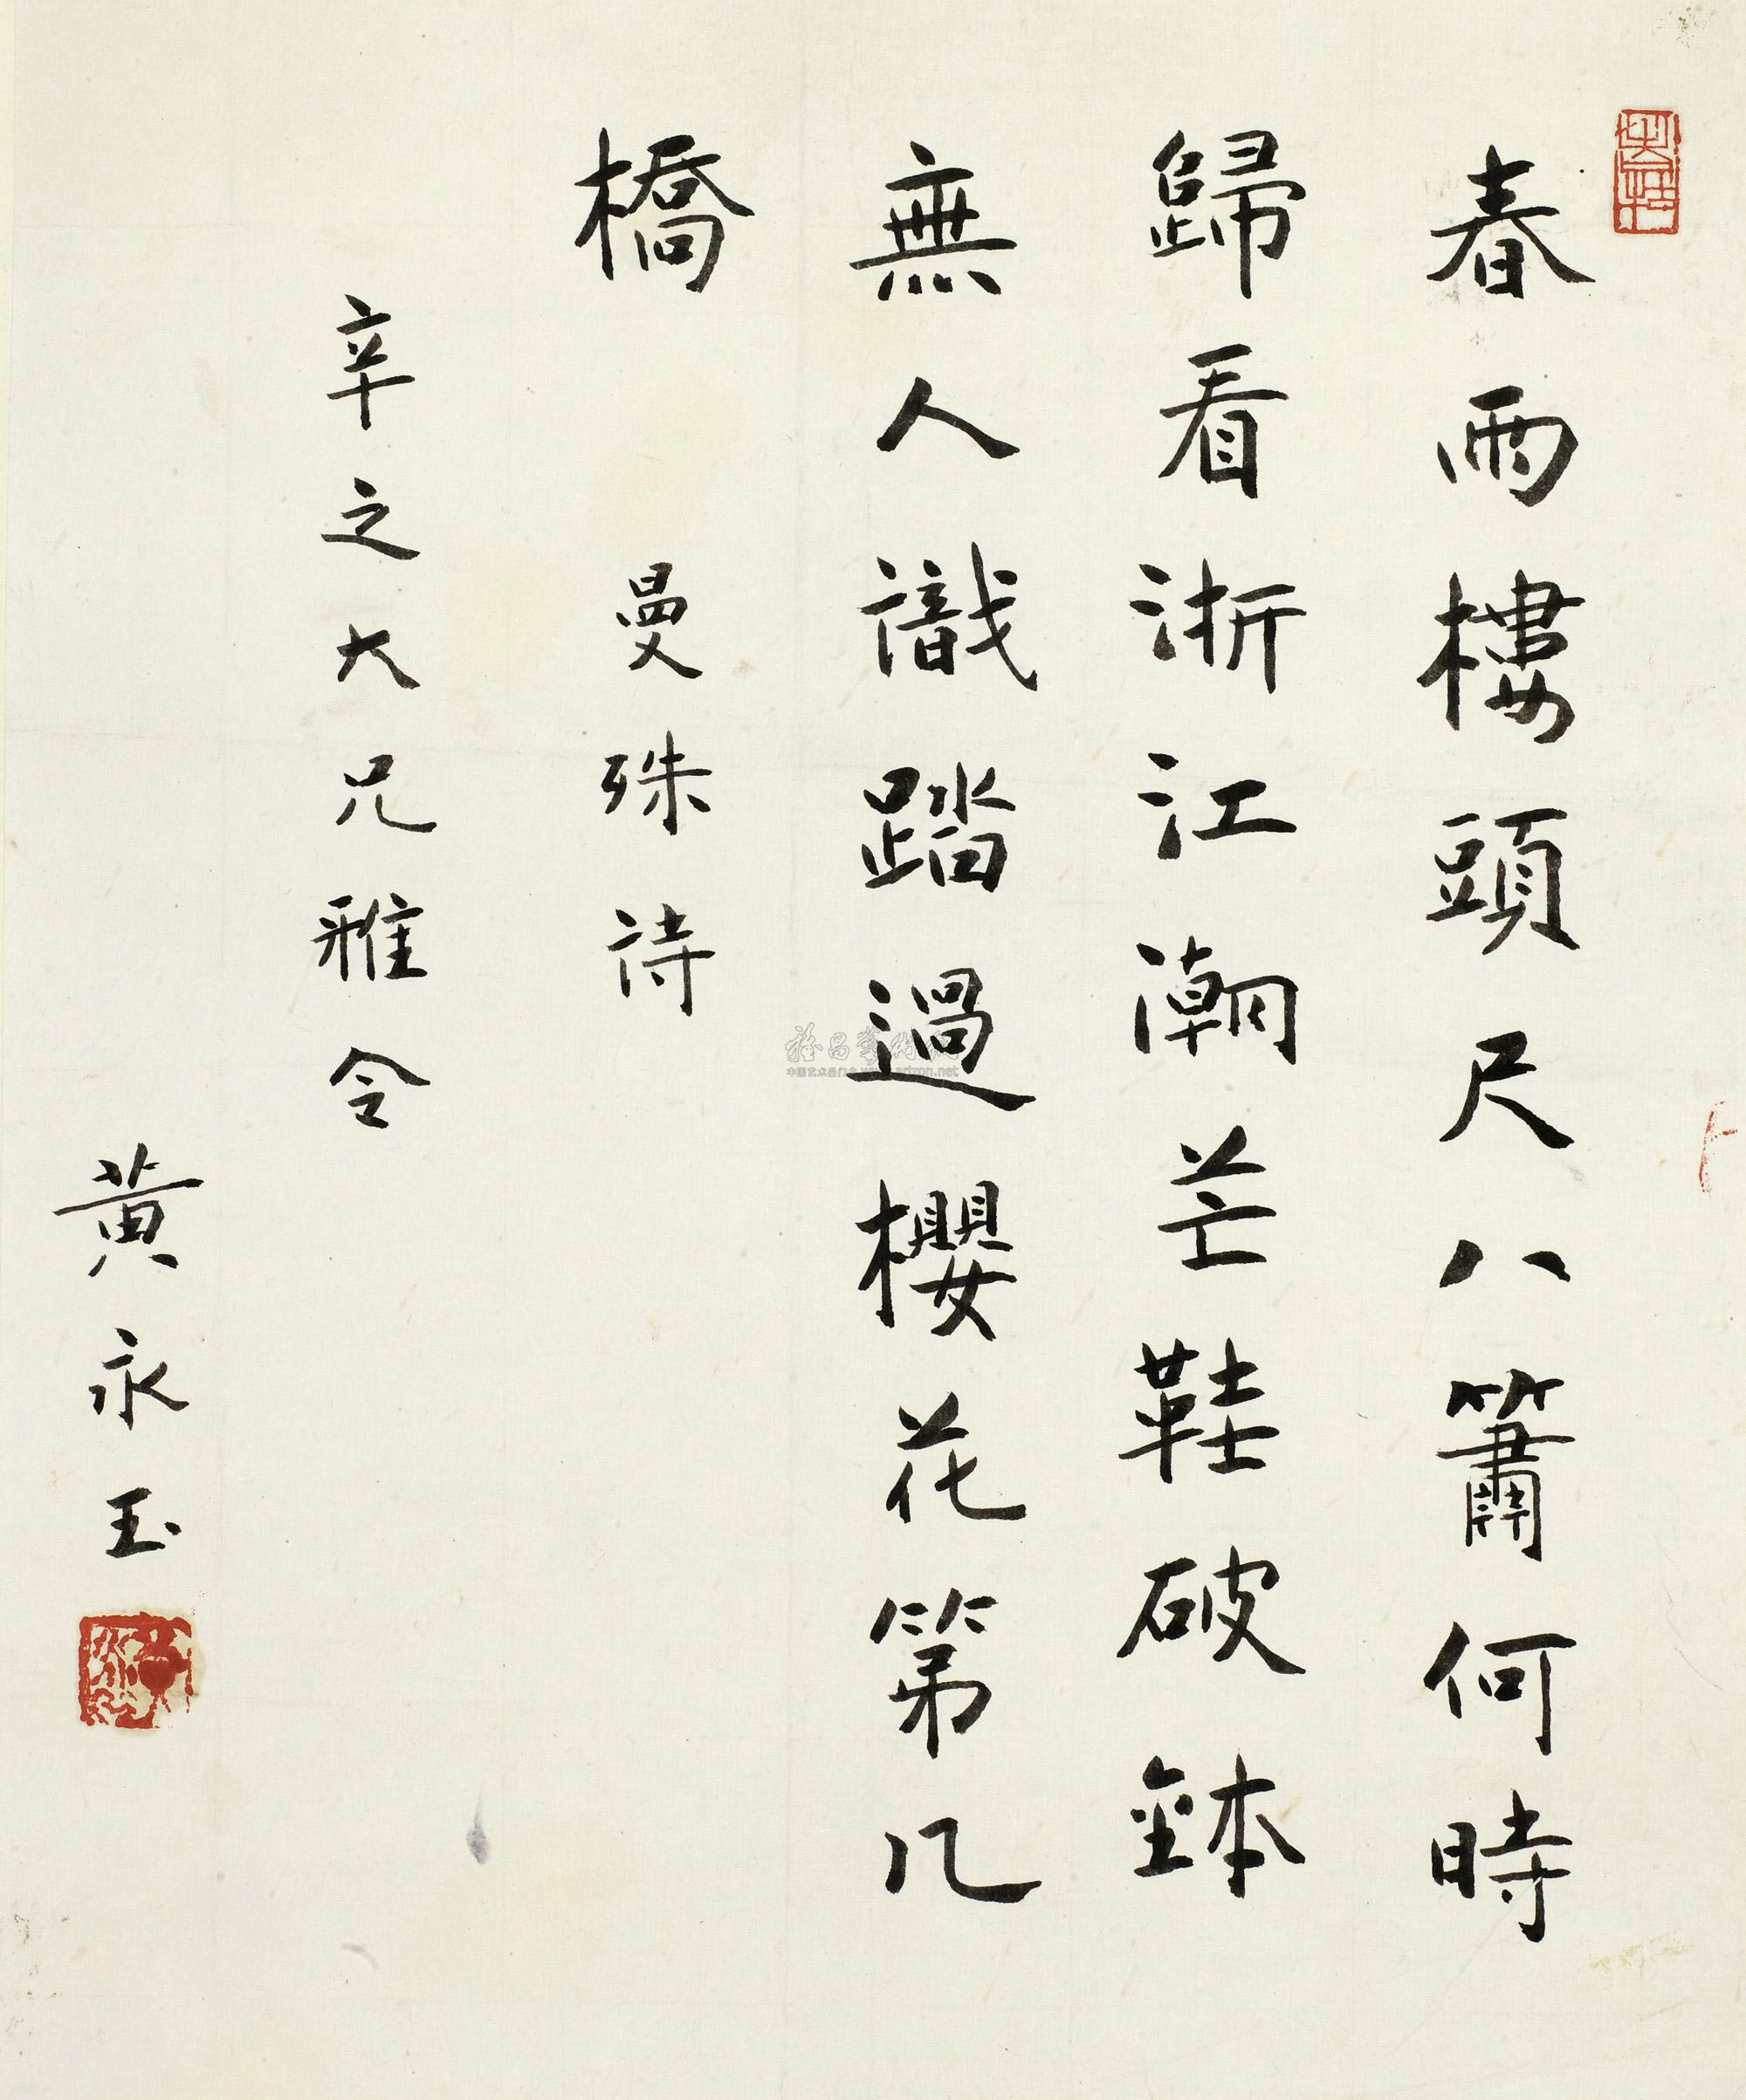 春雨樓頭尺八簫何時
歸看浙江潮芒鞋破鉢
無人識踏過櫻花第几
橋
曼殊詩
辛之大兄雅令
黄永玉